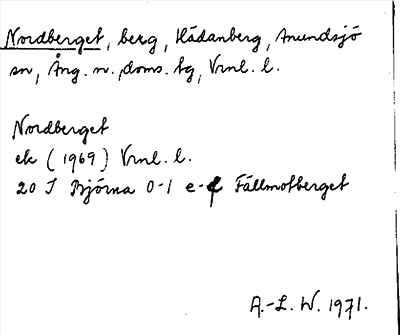 Nordberget, berg, Hädanberg, Anundsjö
sn, Ång. n. doms. tg, Vrnl. l.
Nordberget
ek (1969) Vrnl. l.
20 I Björna 0-1 e-f Fällmotberget
A.-L. W. 1971.